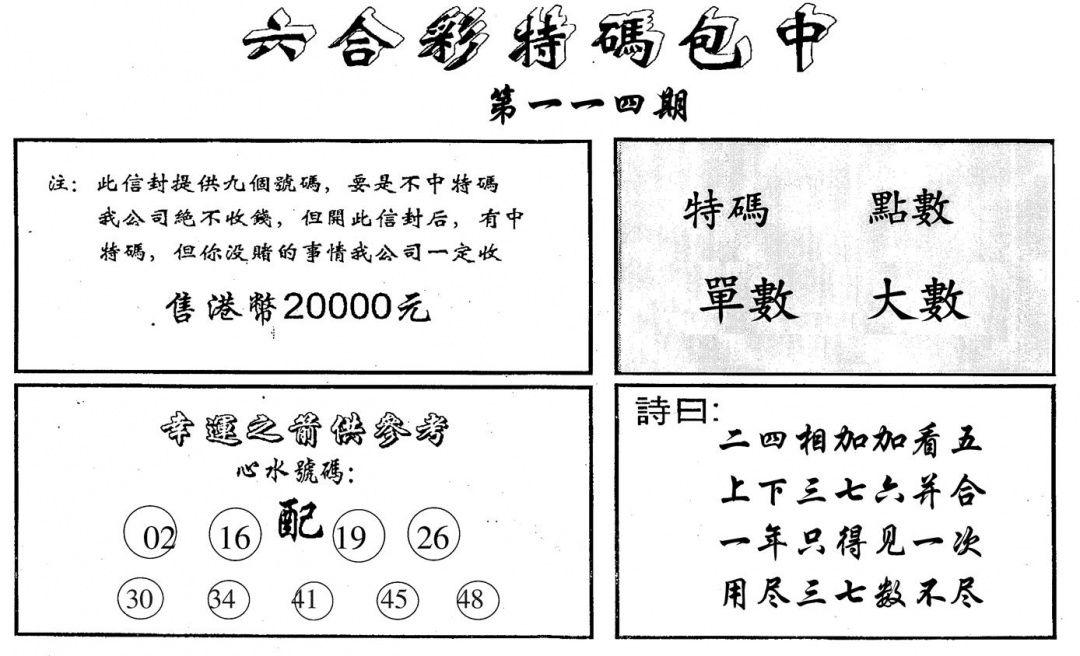 六合彩特碼包中
第一一四期
注：此信封提供九個號碼，要是不中特碼
我公司絶不收錢，但開此信封后，有中
特碼，但你没賭的事情我公司一定收
售港幣20000元
特碼 點數
單數 大數
幸運之箭供參考
心水號碼：
02 16 配 19 26
30 34 41 45 48
詩曰：
二四相加加看五
上下三七六并合
一年只得见一次
用尽三七数不尽